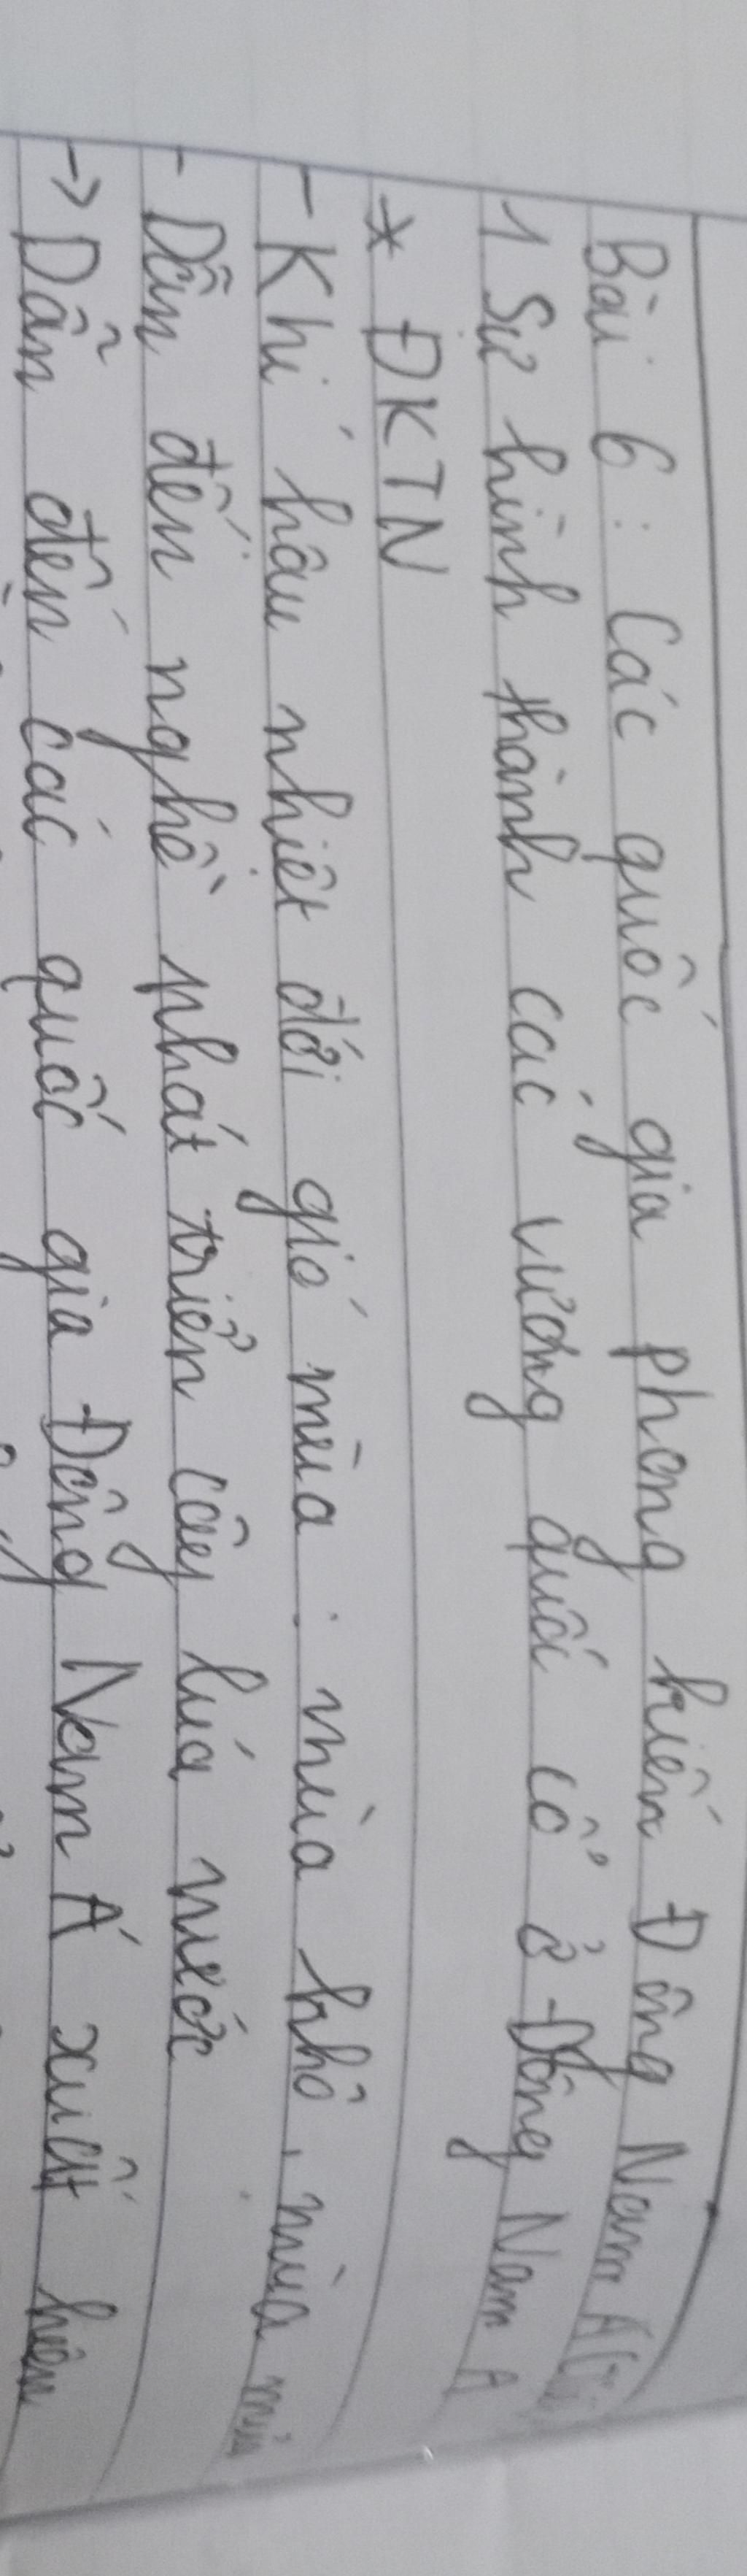 Bài 6: Các quốc gia phong kiến Đông Nam Á
1 Sự hình thành các vương quốc cổ ở Đông Nam Á
* ĐKTN
- Khí hậu nhiệt đới gió mùa: mùa khô, mùa
- Dẫn đến nghề phát triển cây lúa nước
-> Dẫn đến các quốc gia Đông Nam Á xuất hiện